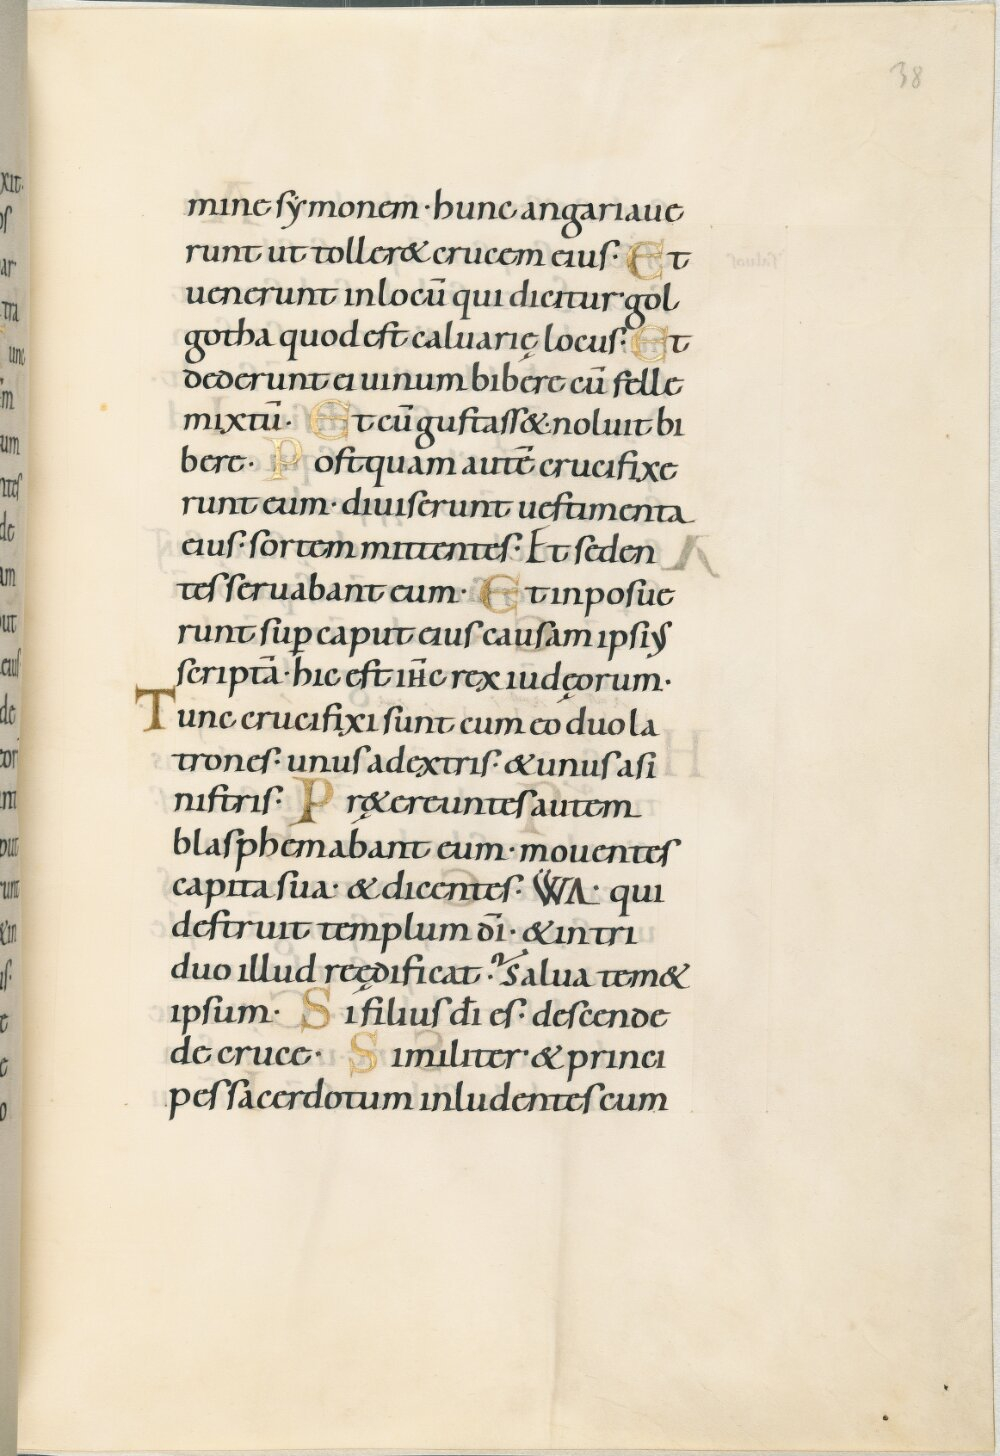 38
mine sẏmonem · hunc angariaue
runt ut toller& crucem eius · Et
uenerunt in locū qui dicitur · gol
gotha quod est caluarię locus · Et
dederunt ei uinum bibére cū felle
mixtū · Et cū gustass& · noluit bi
bere · Postquam autē crucifixe
runt eum · diuiserunt uestimenta
eius · sortem mittentes · Et seden
tes seruabant eum · Et inposue
runt suꝑ caput eius causam ipsiꝰ
scriptā · hic est ihc̄ rex iudęorum ·
Tunc crucifixi sunt cum eo duo la
trones · unus a dextris · & unus a si
nistris · Pr&ereuntes autem
blasphemabant eum · mouentes
capita sua · & dicentes · VVA · qui
destruit templum dī · & in tri
duo illud reędificat · Salua tem&
ipsum · Si filius dī es · descende
de cruce · Similiter · & princi
pes sacerdotum inludentes cum